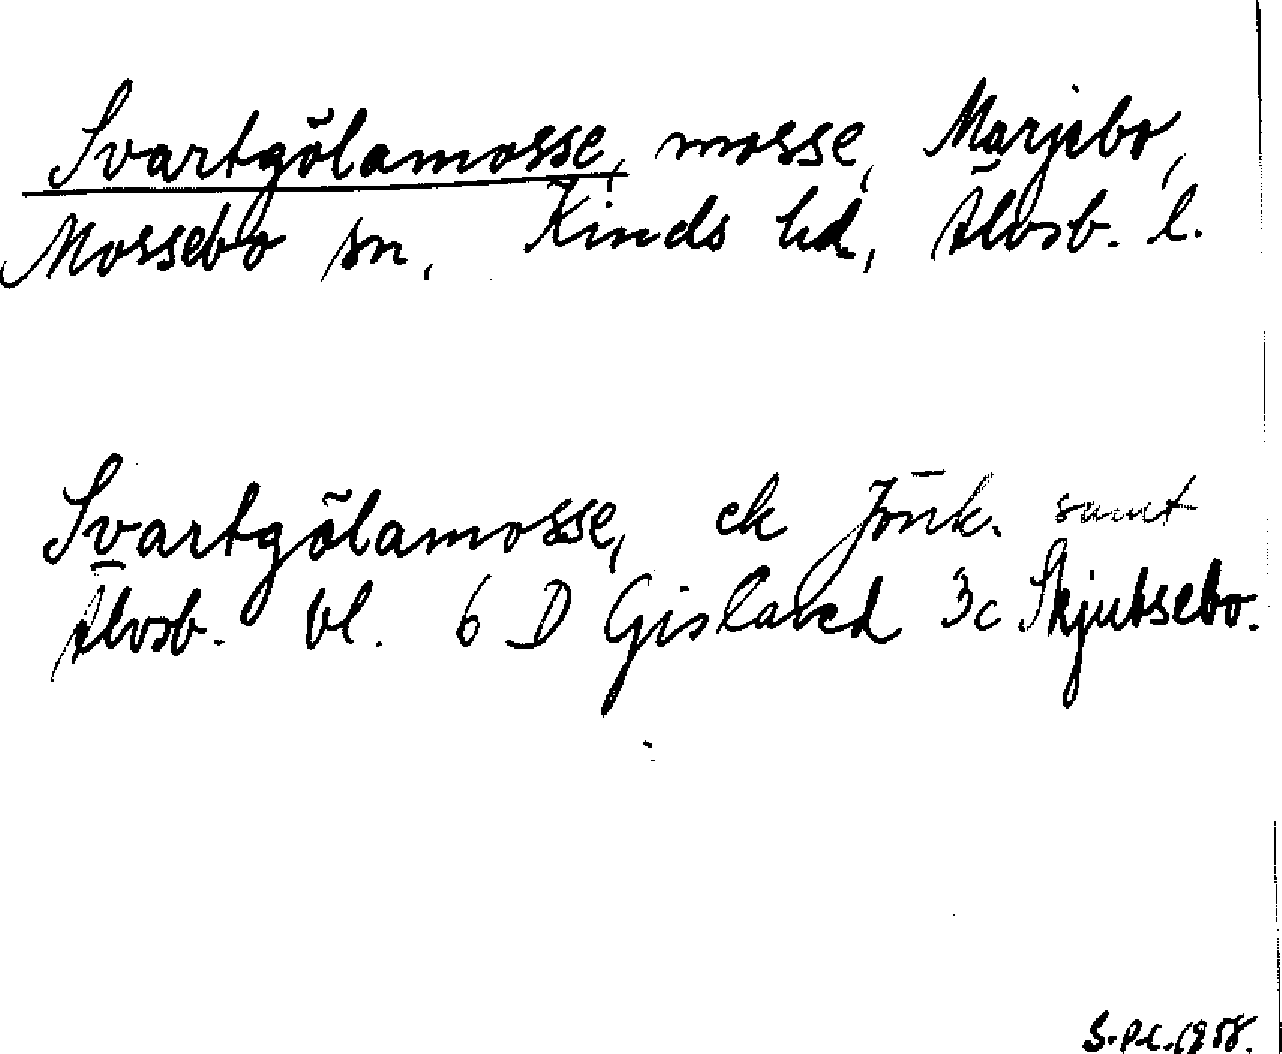 Svartgölamosse, mosse, Marjebo,
Mossebo sn, Kinds hd, Älvsb. l.
Svartgölamosse, ek Jönk. samt
Älvsb. bl. 6 D Gislaved 3c Skjutsebo.
S.P.L. 1958.